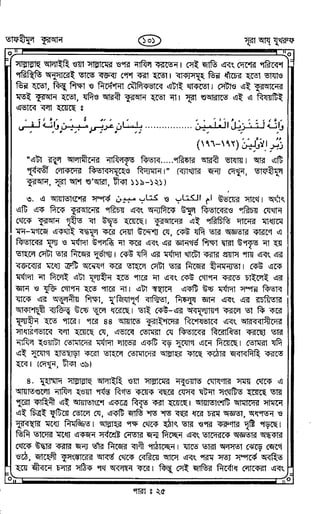 তাফহীমুল কুরআন
১০১
সূরা আয্ যুখরুফ
সাল্লাল্লাহু আলাইহি ওয়া সাল্লামের ওপর নাযিল করতেন। সেই জাতি এবং দেশের পরিবেশ
পরিস্থিতি অনুসারেই তাকে বক্তব্য পেশ করা হতো। বাক্যসমূহ ভিন্ন ধাঁচের হতো ভাষাও
ভিন্ন হতো, কিন্তু শিক্ষা ও নির্দেশনা মৌলিকভাবে এটাই থাকতো। সেটাও এই কুরআনের
মতই কুরআন হতো, যদিও আরবী কুরআন হতো না। সূরা শু'আরাতে এই এ বিষয়টিই
এভাবে বলা হয়েছে ঃ
وَإِنَّهُ لَتَنْزِيلُ رَبِّ الْعٰلَمِينَ ................ بِلِسَانٍ عَرَبِيٍّ مُّبِينٍ وَإِنَّهُ لَفِي
زُبُرِ الْأَوَّلِينَ (١٩٢-١٩٦)
"এটা রব্বুল আলামীনের নাযিলকৃত কিতাব.....পরিষ্কার আরবী ভাষায়। আর এটি
পূর্ববর্তী লোকদের কিতাবসমূহেও বিদ্যমান।" (ব্যাখ্যার জন্য দেখুন, তাফহীমুল
কুরআন, সূরা আশ শু'আরা, টীকা ১১৯-১২১)
৩. এ আয়াতাংশের সম্পর্ক كتاب مبين ও ام الكتاب উভয়ের সাথে। অর্থাৎ
এটি এক দিকে কুরআনের পরিচয় এবং অন্যদিকে উম্মুল কিতাবেরও পরিচয় যেখান
থেকে কুরআন গৃহীত বা উদ্ধৃত হয়েছে। কুরআনের এই পরিচিতি দানের মাধ্যমে
মন-মগজে একথাই বদ্ধমূল করে দেয়া উদ্দেশ্য যে, কেউ যদি তার অজ্ঞতার কারণে এ
কিতাবের মূল্য ও মর্যাদা উপলব্ধি না করে এবং এর জ্ঞানগর্ভ শিক্ষা দ্বারা উপকৃত না হয়
তাহলে সেটা তার নিজের দুর্ভাগ্য। কেউ যদি এর মর্যাদা খাটো করার প্রয়াস পায় এবং এর
বক্তব্যের মধ্যে ত্রুটি অন্বেষণ করে তাহলে সেটা তার নিজের হীনমন্যতা। কেউ একে
মর্যাদা না দিলেই এটা মূল্যহীন হতে পারে না এবং কেউ গোপন করতে চাইলেই এর
জ্ঞান ও যুক্তি গোপন হতে পারে না। এটা স্বস্থানে একটি উচ্চ মর্যাদা সম্পন্ন কিতাব
যাকে এর অতুলনীয় শিক্ষা, মু'জিযাপূর্ণ বাগ্মিতা, নিষ্কলুষ জ্ঞান এবং এর রচয়িতার
আকাশচুম্বী ব্যক্তিত্ব উচ্চে তুলে ধরেছে। তাই কেউ-এর অবমূল্যায়ণ করলে তা কি করে
মূল্যহীন হতে পারে। পরে ৪৪ আয়াতে কুরাইশদের বিশেষভাবে এবং আরববাসীদের
সাধারণভাবে বলা হয়েছে যে, এভাবে তোমরা যে কিতাবের বিরোধিতা করছো তার
নাযিল হওয়াটা তোমাদের মর্যাদা লাভের একটি বড় সুযোগ এনে দিয়েছে। তোমরা যদি
এই সুযোগ হাতছাড়া করো তাহলে তোমাদের আল্লাহর কাছে কঠোর জবাবদিহি করতে
হবে। (দেখুন, টীকা ৩৯)
৪. মুহাম্মাদ সাল্লাল্লাহু আলাইহি ওয়া সাল্লামের নবুওয়াত ঘোষণার সময় থেকে এ
আয়াতগুলো নাযিল হওয়া পর্যন্ত বিগত কয়েক বছরে যেসব ঘটনা সংঘটিত হয়েছে তার
পুরো কাহিনী এই আয়াতাংশে একত্রে বিবৃত করা হয়েছে। আয়াতাংশটি আমাদের সামনে
এই চিত্রই ফুটিয়ে তোলে যে, একটি জাতি শত শত বছর ধরে চরম অজ্ঞতা, অধপতন ও
দুরবস্থার মধ্যে নিমজ্জিত। আল্লাহর পক্ষ থেকে হঠাৎ তার ওপর করুণার দৃষ্টি পড়ছে।
তিনি তাদের মধ্যে একজন সর্বশ্রেষ্ঠ নেতার জন্ম দিচ্ছেন এবং তাদেরকে অজ্ঞতার অন্ধকার
থেকে উদ্ধার করার জন্য তাঁর নিজের বাণী পাঠাচ্ছেন। যাতে তারা অলসতা ঝেড়ে জেগে
ওঠে, জাহেলী কুসংস্কারের আবর্ত থেকে বেরিয়ে আসে এবং পরম সত্য সম্পর্কে অবহিত
হয়ে জীবনে চলার সঠিক পথ অবলম্বন করে। কিন্তু সেই জাতির নির্বোধ লোকেরা এবং
পারা ঃ ২৫